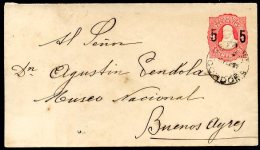 5 5
Al Señor
Dn Agustin Pendola
Museo Nacional
Buenos Ayres